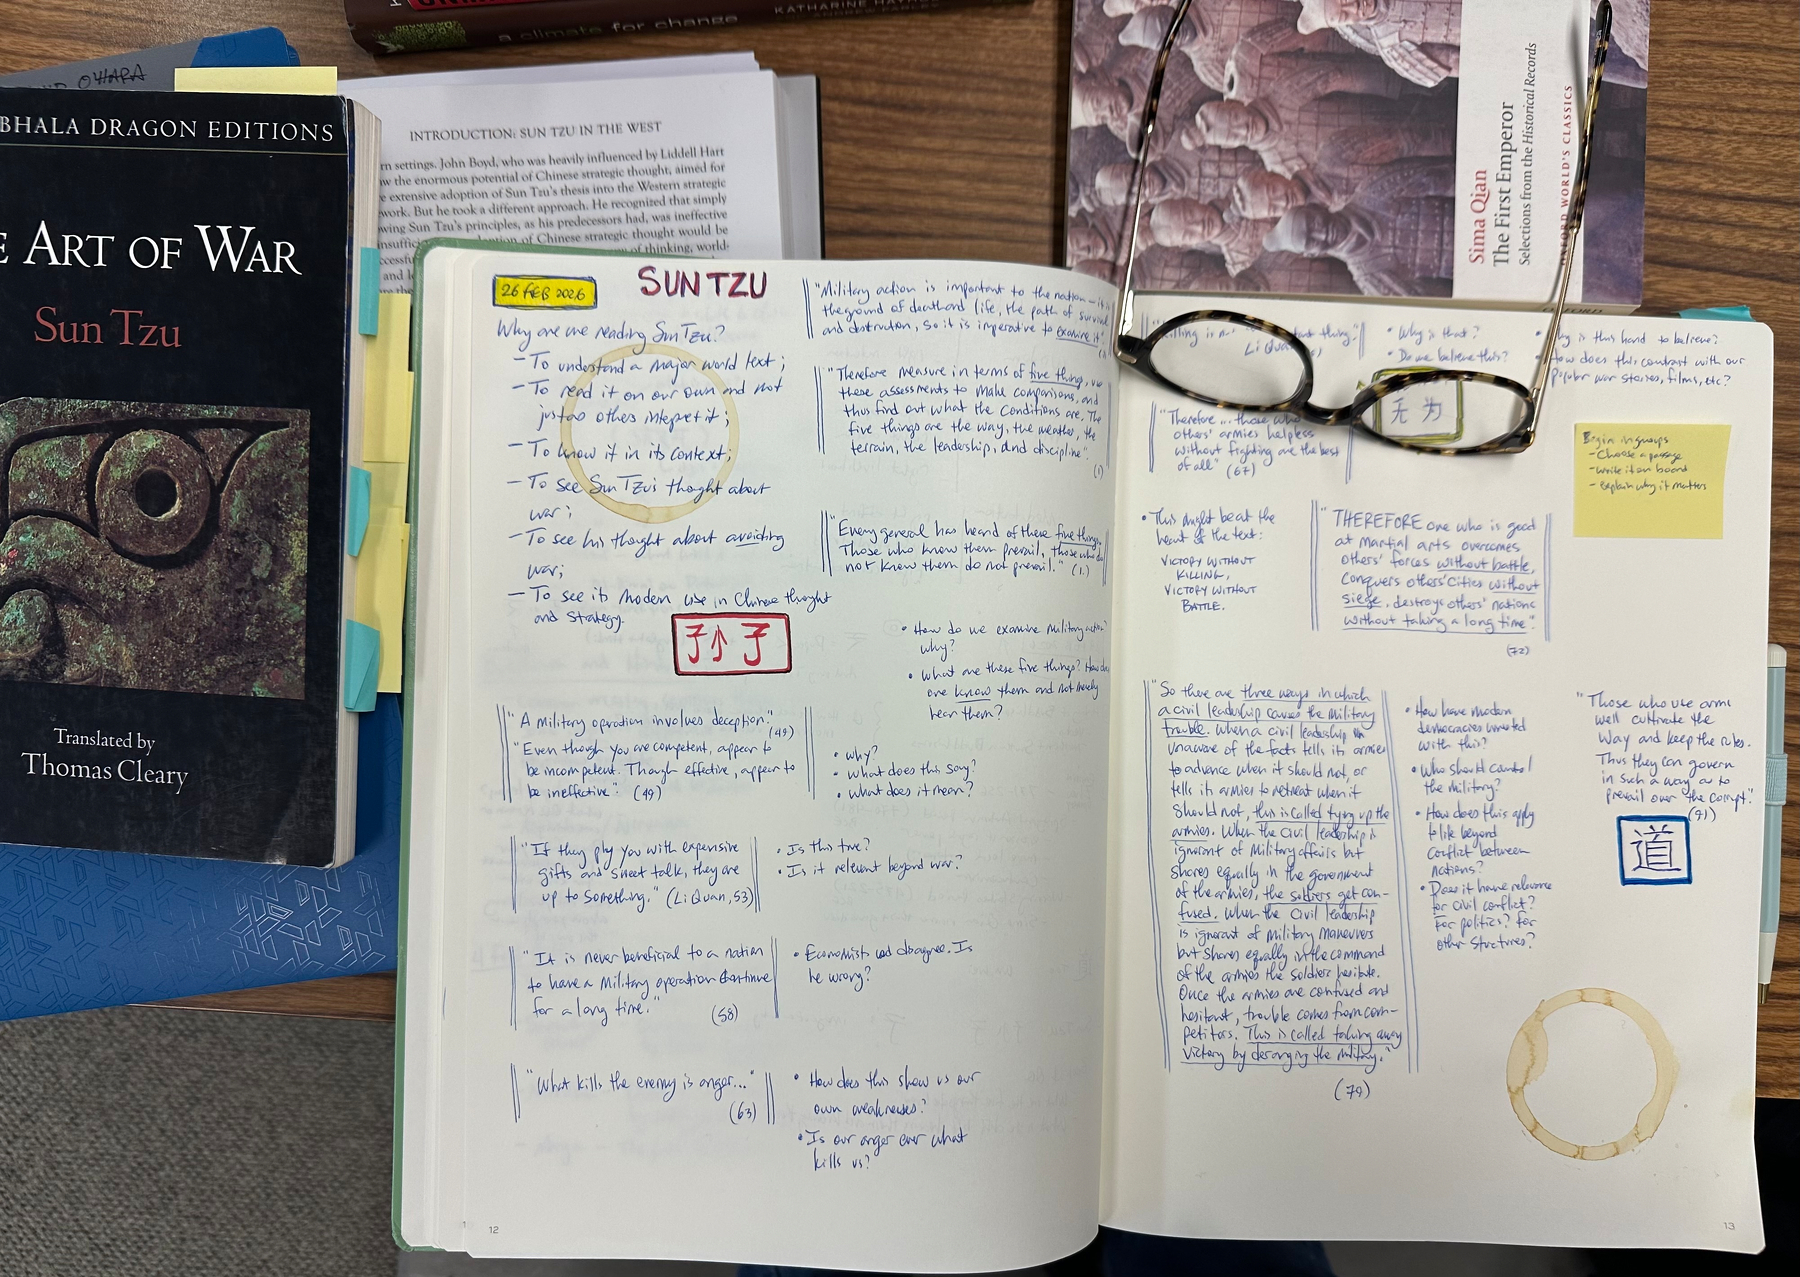 a climate for change
KATHARINE
OHARA
BHALA DRAGON EDITIONS
ART OF WAR
Sun Tzu
Translated by
Thomas Cleary
INTRODUCTION: SUN TZU IN THE WEST
rn settings. John Boyd, who was heavily influenced by Liddell Hart
w the enormous potential of Chinese strategic thought, aimed for
e extensive adoption of Sun Tzu's thesis into the Western strategic
work. But he took a different approach. He recognized that simply
wing Sun Tzu's principles, as his predecessors had, was ineffective
of Chinese strategic thought would be
of thinking, world-
and
Sima Qian
The First Emperor
Selections from the Historical Records
OXFORD WORLD'S CLASSICS
OXFORD
26 FEB 2026
SUN TZU
Why are we reading Sun Tzu?
- To understand a major world text;
- To read it on our own and not
just as others interpret it;
- To know it in its context;
- To see Sun Tzu's thought about
war;
- To see his thought about avoiding
war;
- To see its modern use in Chinese thought
and strategy.
"A military operation involves deception."
(49)
"Even though you are competent, appear to
be incompetent. Though effective, appear to
be ineffective." (49)
• Why?
• What does this say?
• What does it mean?
"If they ply you with expensive
gifts and sweet talk, they are
up to something." (Li Quan, 53)
• Is this true?
• Is it relevant beyond war?
"It is never beneficial to a nation
to have a military operation continue
for a long time."
(58)
• Economists disagree. Is
he wrong?
"What kills the enemy is anger..."
(63)
• How does this show us our
own weaknesses?
• Is our anger ever what
kills us?
12
"Military action is important to the nation – it is
the ground of death and life, the path of survival
and destruction, so it is imperative to examine it."
"Therefore measure in terms of five things, use
these assessments to make comparisons, and
thus find out what the conditions are. The
five things are the way, the weather, the
terrain, the leadership, and discipline".
(1)
"Every general has heard of these five things.
Those who know them prevail, those who do
not know them do not prevail." (1.)
• How do we examine military action?
why?
• What are these five things? How does
one know them and not merely
hear them?
"Killing is important thing."
Li Quan
• Why is that?
• Do we believe this?
• Why is this hard to believe?
How does this contrast with our
popular war stories, films, etc?
无为
"Therefore... those who
others' armies helpless
without fighting are the best
of all" (67)
Begin in groups
- Choose a passage
- Write it on board
- Explain why it matters
• This might be at the
heart of the text:
VICTORY WITHOUT
KILLING,
VICTORY WITHOUT
BATTLE.
"THEREFORE one who is good
at martial arts overcomes
others' forces without battle,
conquers others' cities without
siege, destroys others' nations
without taking a long time".
(72)
"So there are three ways in which
a civil leadership causes the military
trouble. When a civil leadership
unaware of the facts tells its armies
to advance when it should not, or
tells its armies to retreat when it
should not, this is called tying up the
armies. When the civil leadership is
ignorant of military affairs but
shares equally in the government
of the armies, the soldiers get con-
fused. When the civil leadership
is ignorant of military maneuvers
but shares equally in the command
of the armies the soldiers hesitate.
Once the armies are confused and
hesitant, trouble comes from com-
petitors. This is called taking away
victory by deranging the military."
(79)
• How have modern
democracies wrested
with this?
• Who should control
the military?
• How does this apply
to life beyond
conflict between
nations?
• Does it have relevance
for civil conflict?
For politics? For
other structures?
"Those who use arms
well cultivate the
Way and keep the rules.
Thus they can govern
in such a way as to
prevail over the corrupt."
(91)
道
13